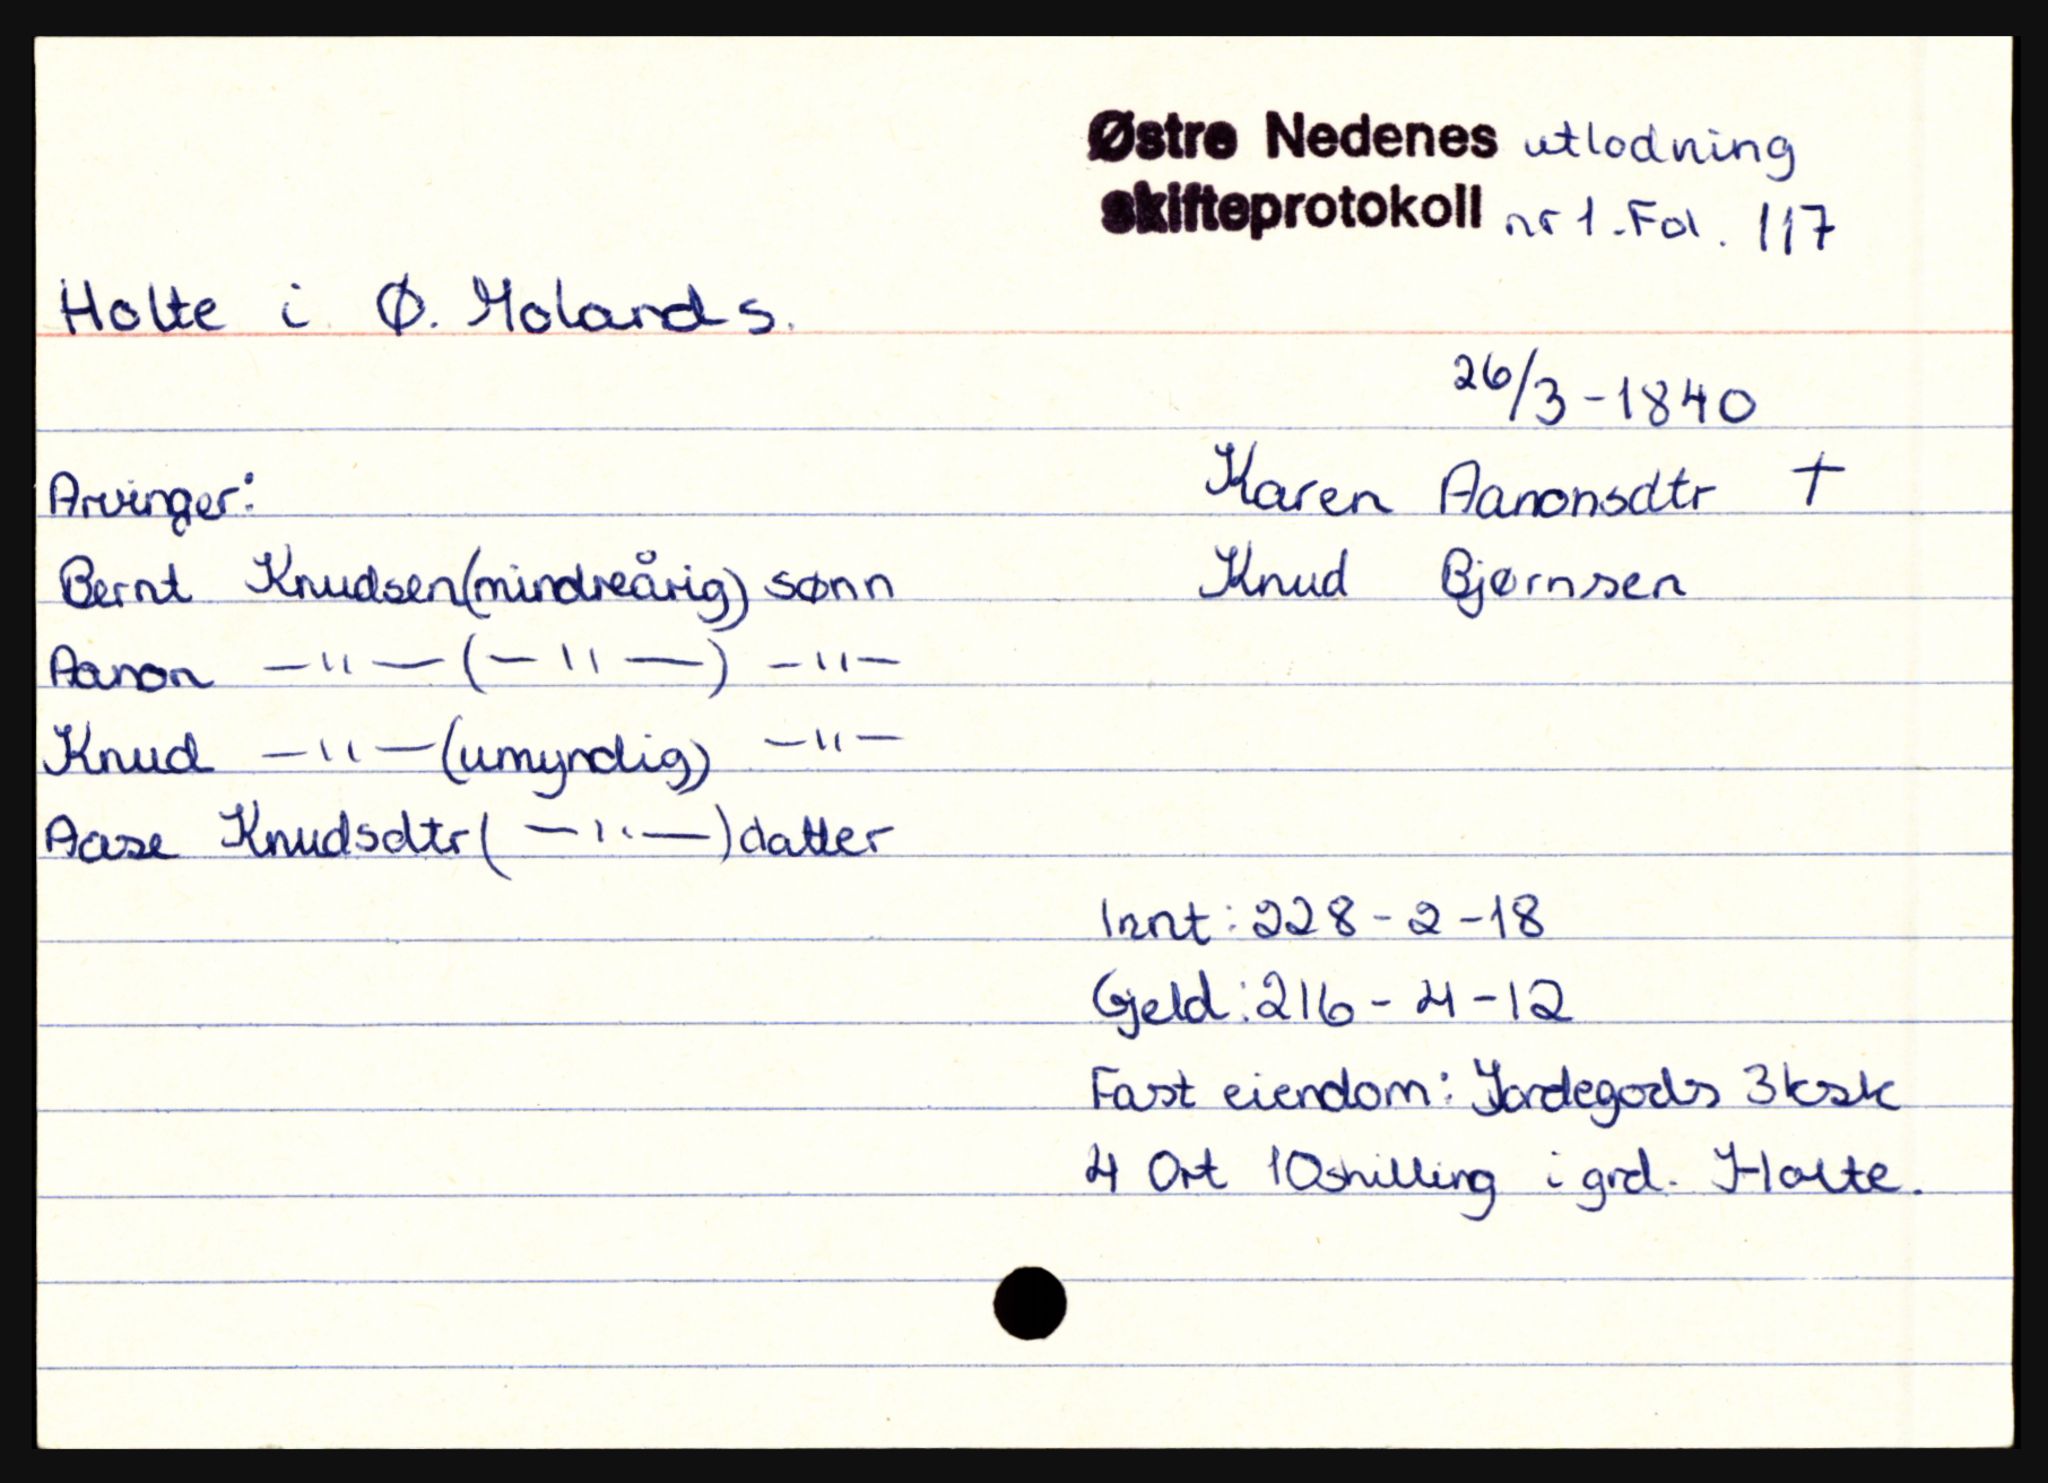 Østre Nedenes utlodning
skifteprotokoll nr 1. Fol. 117
Holte i Ø. Molands.
26/3-1840
Arvinger:
Karen Aanonsdtr †
Bernt Knudsen (mindreårig) sønn
Knud Bjørnsen
Aanon —"— (—"—) —"—
Knud —"— (umyndig) —"—
Aase Knudsdtr (—"—) datter
Innt: 228-2-18
Gjeld: 216-4-12
Fast eiendom: Jordegods 3 ksk
4 Ort 10 shilling i grd. Holte.